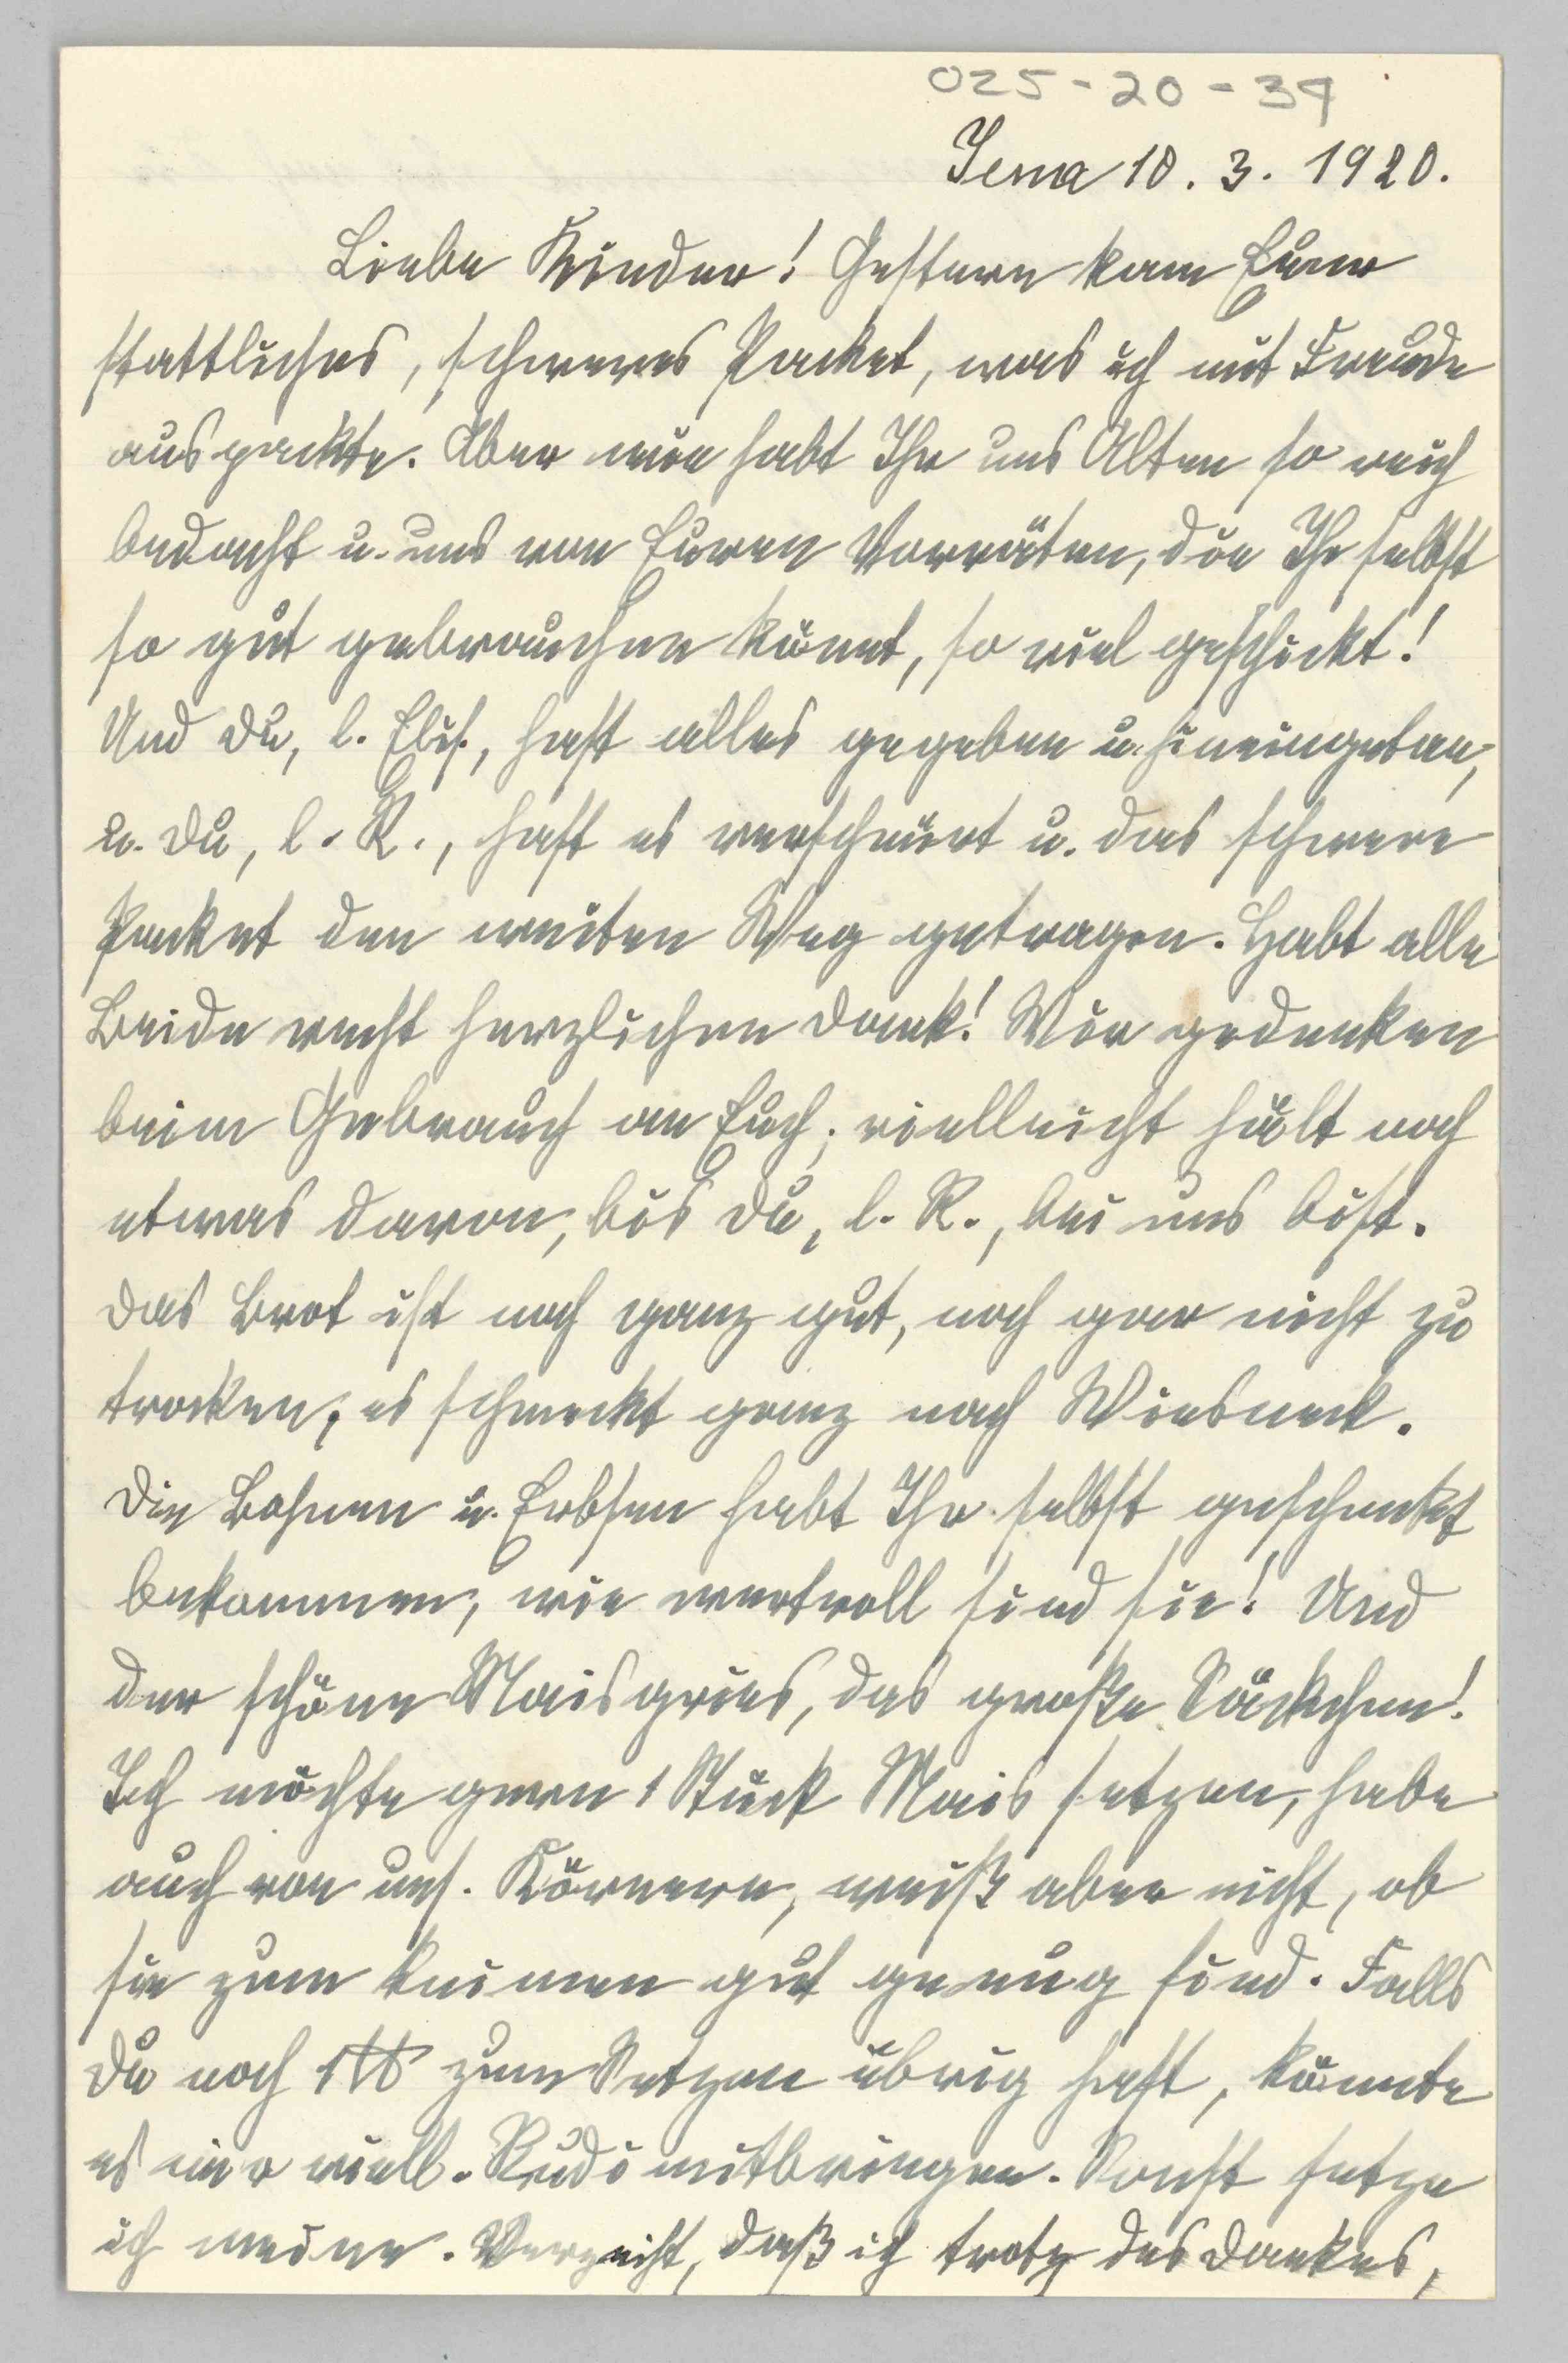 025-20-34
Jena 10. 3. 1920.
Liebe Kinder! Gestern kam Euer
stattliches, schweres Packet, was ich mit Freude
auspackte. Aber wie habt Ihr uns Alten so reich
bedacht u. uns von Euren Vorräten, die Ihr selbst
so gut gebrauchen könnt, so viel geschickt!
Und Du, l. Elis., hast alles gegeben u. hineingetan,
u. Du, l. R., hast es verschnürt u. das schwere
Packet den weiten Weg getragen. Habt alle
Beide recht herzlichen Dank! Wir gedenken
beim Gebrauch an Euch; vielleicht hält noch
etwas davon, bis Du, l. R., bei uns bist.
Das Brot ist noch ganz gut, noch gar nicht zu
trocken, es schmeckt ganz nach Wiesneck.
Die Bohnen u. Erbsen habt Ihr selbst geschenkt
bekommen, wie wertvoll sind sie! Und
der schöne Maisgries, das große Säckchen!
Ich möchte gern 1 Stück Mais setzen, habe
auch von uns. Körnern, weiß aber nicht, ob
sie zum keimen gut genug sind. Falls
Du noch 1 ℔ zum Setzen übrig hast, könnte
es mir viell. Rudi mitbringen. Sonst setze
ich meine. Verzeiht, daß ich trotz des Dankes,